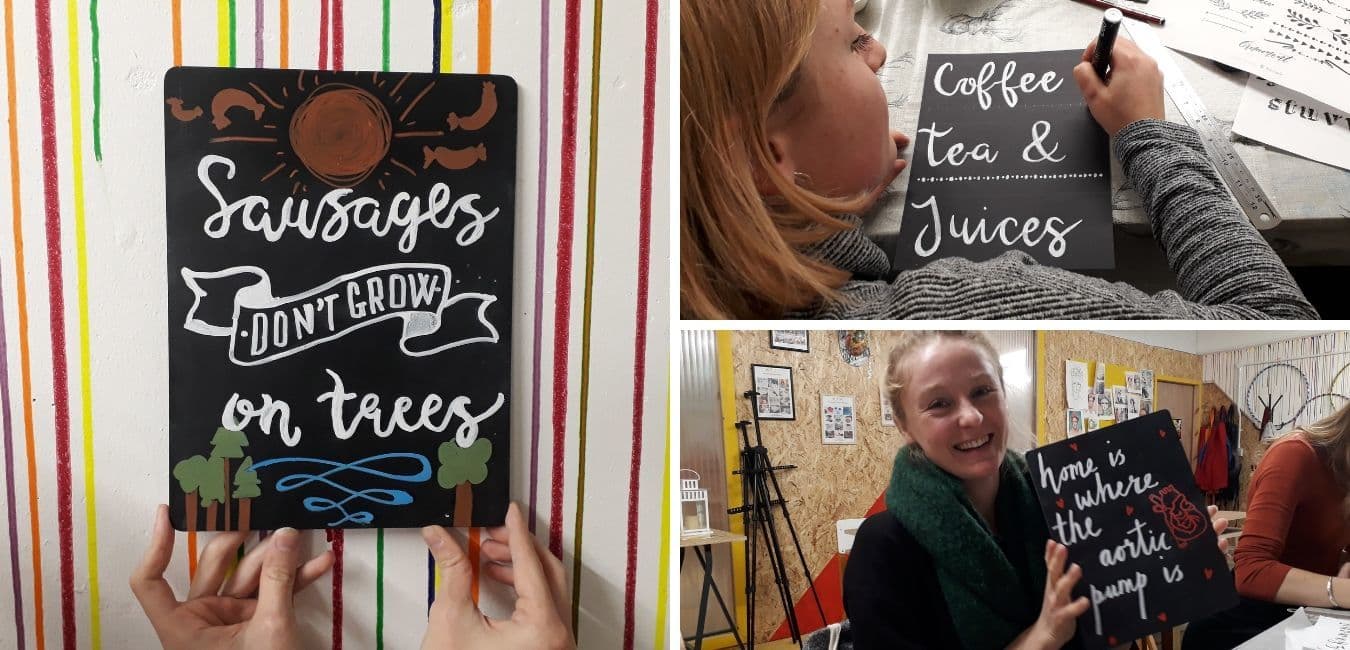 Sausages
DON'T GROW
on trees
Coffee
Tea &
Juices
home is
where
the
aortic
pump is